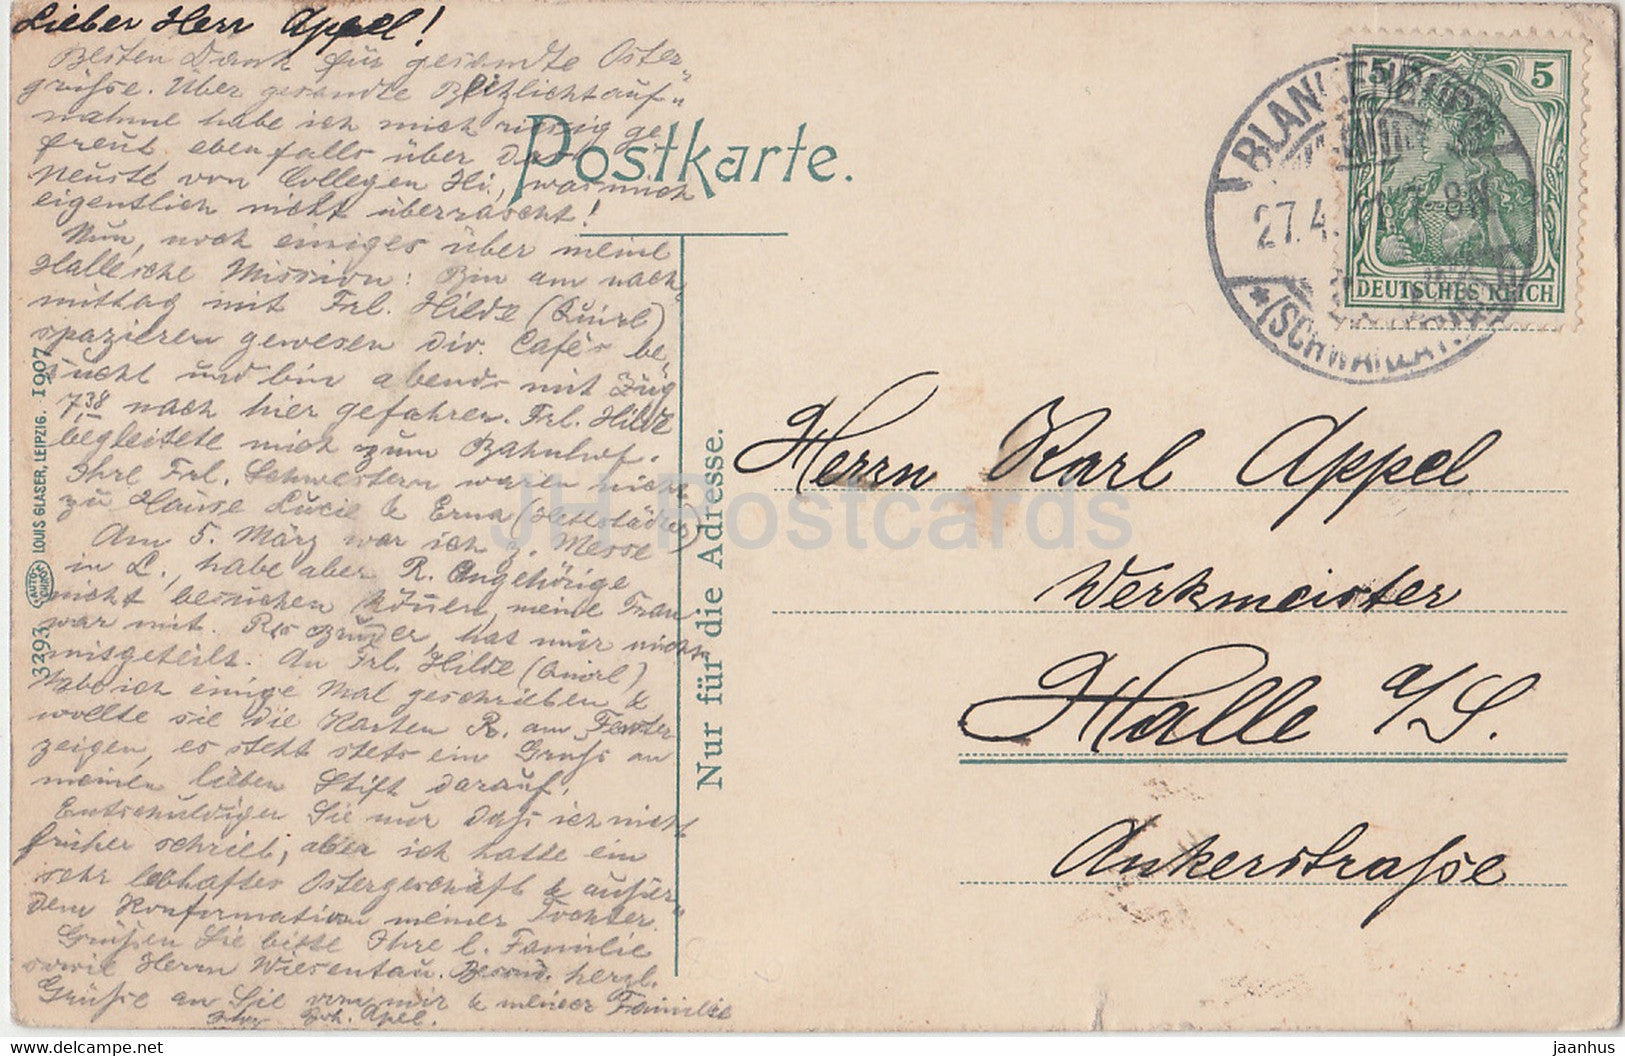 Lieber Herr Appel!
Besten Dank für gesandte Oster-
grüsse. Über gesandte Blizlichtauf-
nahme habe ich mich riesig ge-
freut, ebenfalls über das
Neuste von Collegen Hi., was mich
eigentlich nicht überrascht!
Nun, noch einiges über meine
Hallesche Mission: Bin am nach-
mittag mit Frl. Hilde (Quirl)
spazieren gewesen div. Cafés be-
sucht und bin abends mit Zug
7,38 nach hier gefahren. Frl. Hilde
begleitete mich zum Bahnhof.
Ihre Frl. Schwestern waren nicht
zu Hause Lucie & Erna
Am 5. März war ich z. Messe
in L., habe aber R. Angehörige
nicht besuchen können, meine Frau
war mit. R's Bruder, has mir nichts
misgeteilt. An Frl. Hilde (Quirl)
habe ich einige Mal geschrieben &
wollte sie die Karten R. am Fenster
zeigen, es steht stets ein Gruß an
meinen lieben Stift darauf.
Entschuldigen Sie nur dass ich nicht
früher schrieb, aber ich hatte ein
sehr lebhaftes Ostergeschäft & außer-
dem Konformation meiner Tochter.
Grüßen Sie bitte Ihre l. Familie
sowie Herrn Wiesentau. Besond. herzl.
Grüße an Sie von mir & meiner Familie
Apel.
Postkarte.
Nur für die Adresse.
3293 AUTO CHROM LOUIS GLASER, LEIPZIG. 1907
5 5
DEUTSCHES REICH
BLANKENBURG
27.4. 7-8N.
* (SCHWARZAT
Herrn Karl Appel
Werkmeister
Halle a/S.
Ankerstraße
JH Postcards
https://www.delcampe.net
jaanhus